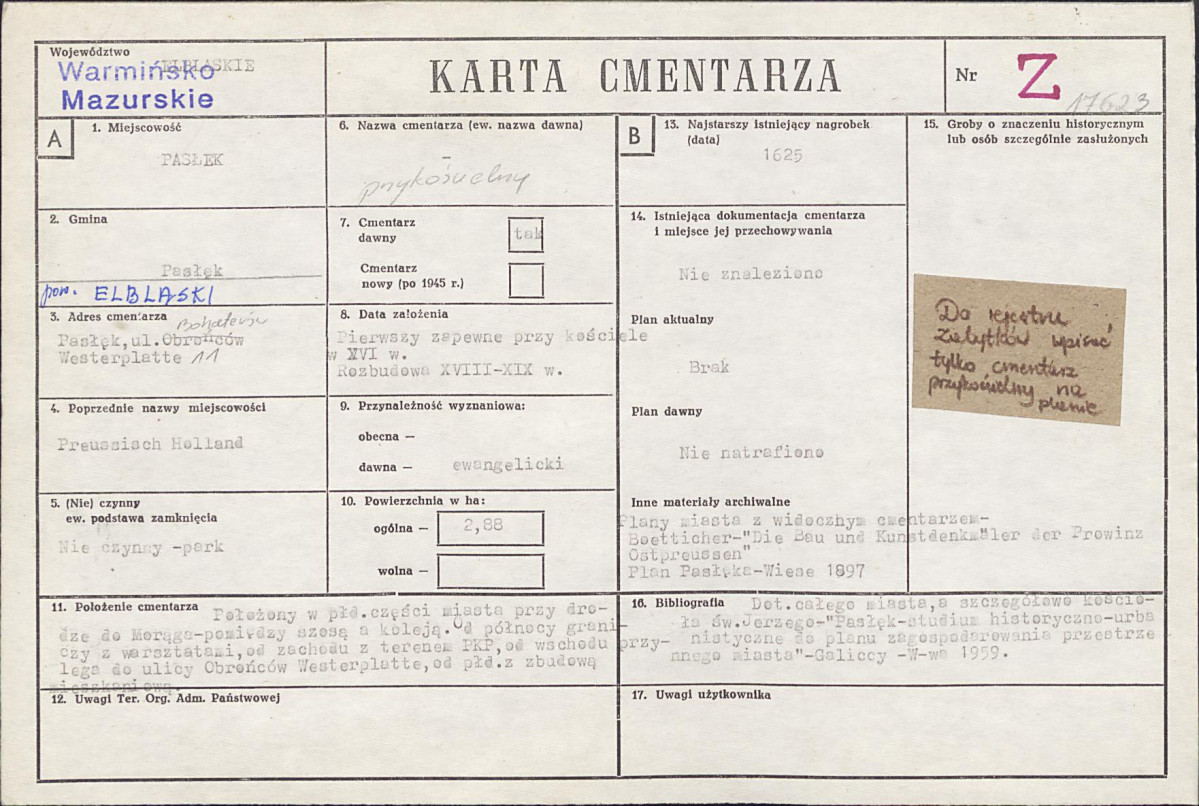 Województwo
ELBLĄSKIE
Warmińsko
Mazurskie
KARTA CMENTARZA
Nr Z
17623
A
1. Miejscowość
PASŁĘK
2. Gmina
Pasłęk
pow. ELBLĄSKI
3. Adres cmentarza
Bohaterów
Pasłęk,ul.Obrońców
Westerplatte 11
4. Poprzednie nazwy miejscowości
Preussisch Holland
5. (Nie) czynny
ew. podstawa zamknięcia
Nie czynny -park
6. Nazwa cmentarza (ew. nazwa dawna)
przykościelny
7. Cmentarz
dawny
tak
Cmentarz
nowy (po 1945 r.)
8. Data założenia
Pierwszy zapewne przy kościele
w XVI w.
Rozbudowa XVIII-XIX w.
9. Przynależność wyznaniowa:
obecna —
dawna — ewangelicki
10. Powierzchnia w ha:
ogólna — 2,88
wolna —
11. Położenie cmentarza Położony w płd.części miasta przy dro-
dze do Morąga-pomiędzy szosą a koleją.Od północy grani-
czy z warsztatami,od zachodu z terenem PKP,od wschodu przy-
lega do ulicy Obrońców Westerplatte,od płd.z zbudową
mieszkaniową.
12. Uwagi Ter. Org. Adm. Państwowej
B
13. Najstarszy istniejący nagrobek
(data)
1625
14. Istniejąca dokumentacja cmentarza
i miejsce jej przechowywania
Nie znaleziono
Plan aktualny
Brak
Plan dawny
Nie natrafiono
Inne materiały archiwalne
Plany miasta z widocznym cmentarzem-
Boetticher-"Die Bau und Kunstdenkmäler der Prowinz
Ostpreussen"
Plan Pasłęka-Wiese 1897
15. Groby o znaczeniu historycznym
lub osób szczególnie zasłużonych
Do rejestru
zabytków wpisać
tylko cmentarz
przykościelny na
planie
16. Bibliografia Dot.całego miasta,a szczegółowo kościo-
ła św.Jerzego-"Pasłęk-studium historyczno-urba
nistyczne do planu zagospodarowania przestrze
nnego miasta"-Galiccy -W-wa 1959.
17. Uwagi użytkownika